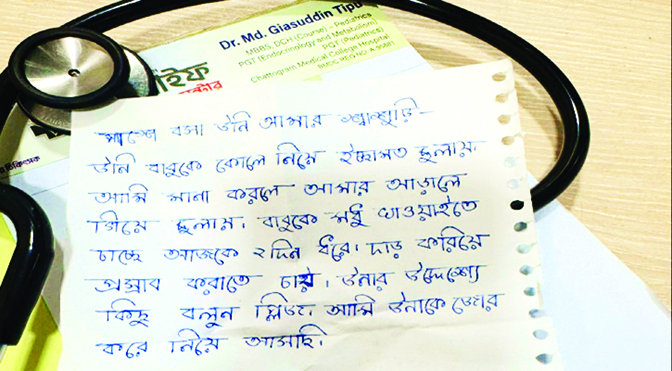 Dr. Md. Giasuddin Tipu
MBBS, DCH (Course) - Pediatrics
PGT (Endocrinology and Metabolism)
PGT (Pediatrics)
Chattogram Medical College Hospital
BMDC REG NO: A-
পাশে বসা উনি আমার শ্বাশুড়ি-
উনি বাবুকে কোলে নিয়ে ইচ্ছামত দুলায়
আমি মানা করলে আমার আড়ালে
গিয়ে দুলায়। বাবুকে মধু খাওয়াইতে
চাচ্ছে আজকে ২ দিন ধরে। দাড় করিয়ে
প্রস্রাব করাতে চায়। উনার উদ্দেশ্যে
কিছু বলুন প্লিজ। আমি উনাকে জোর
করে নিয়ে আসছি।